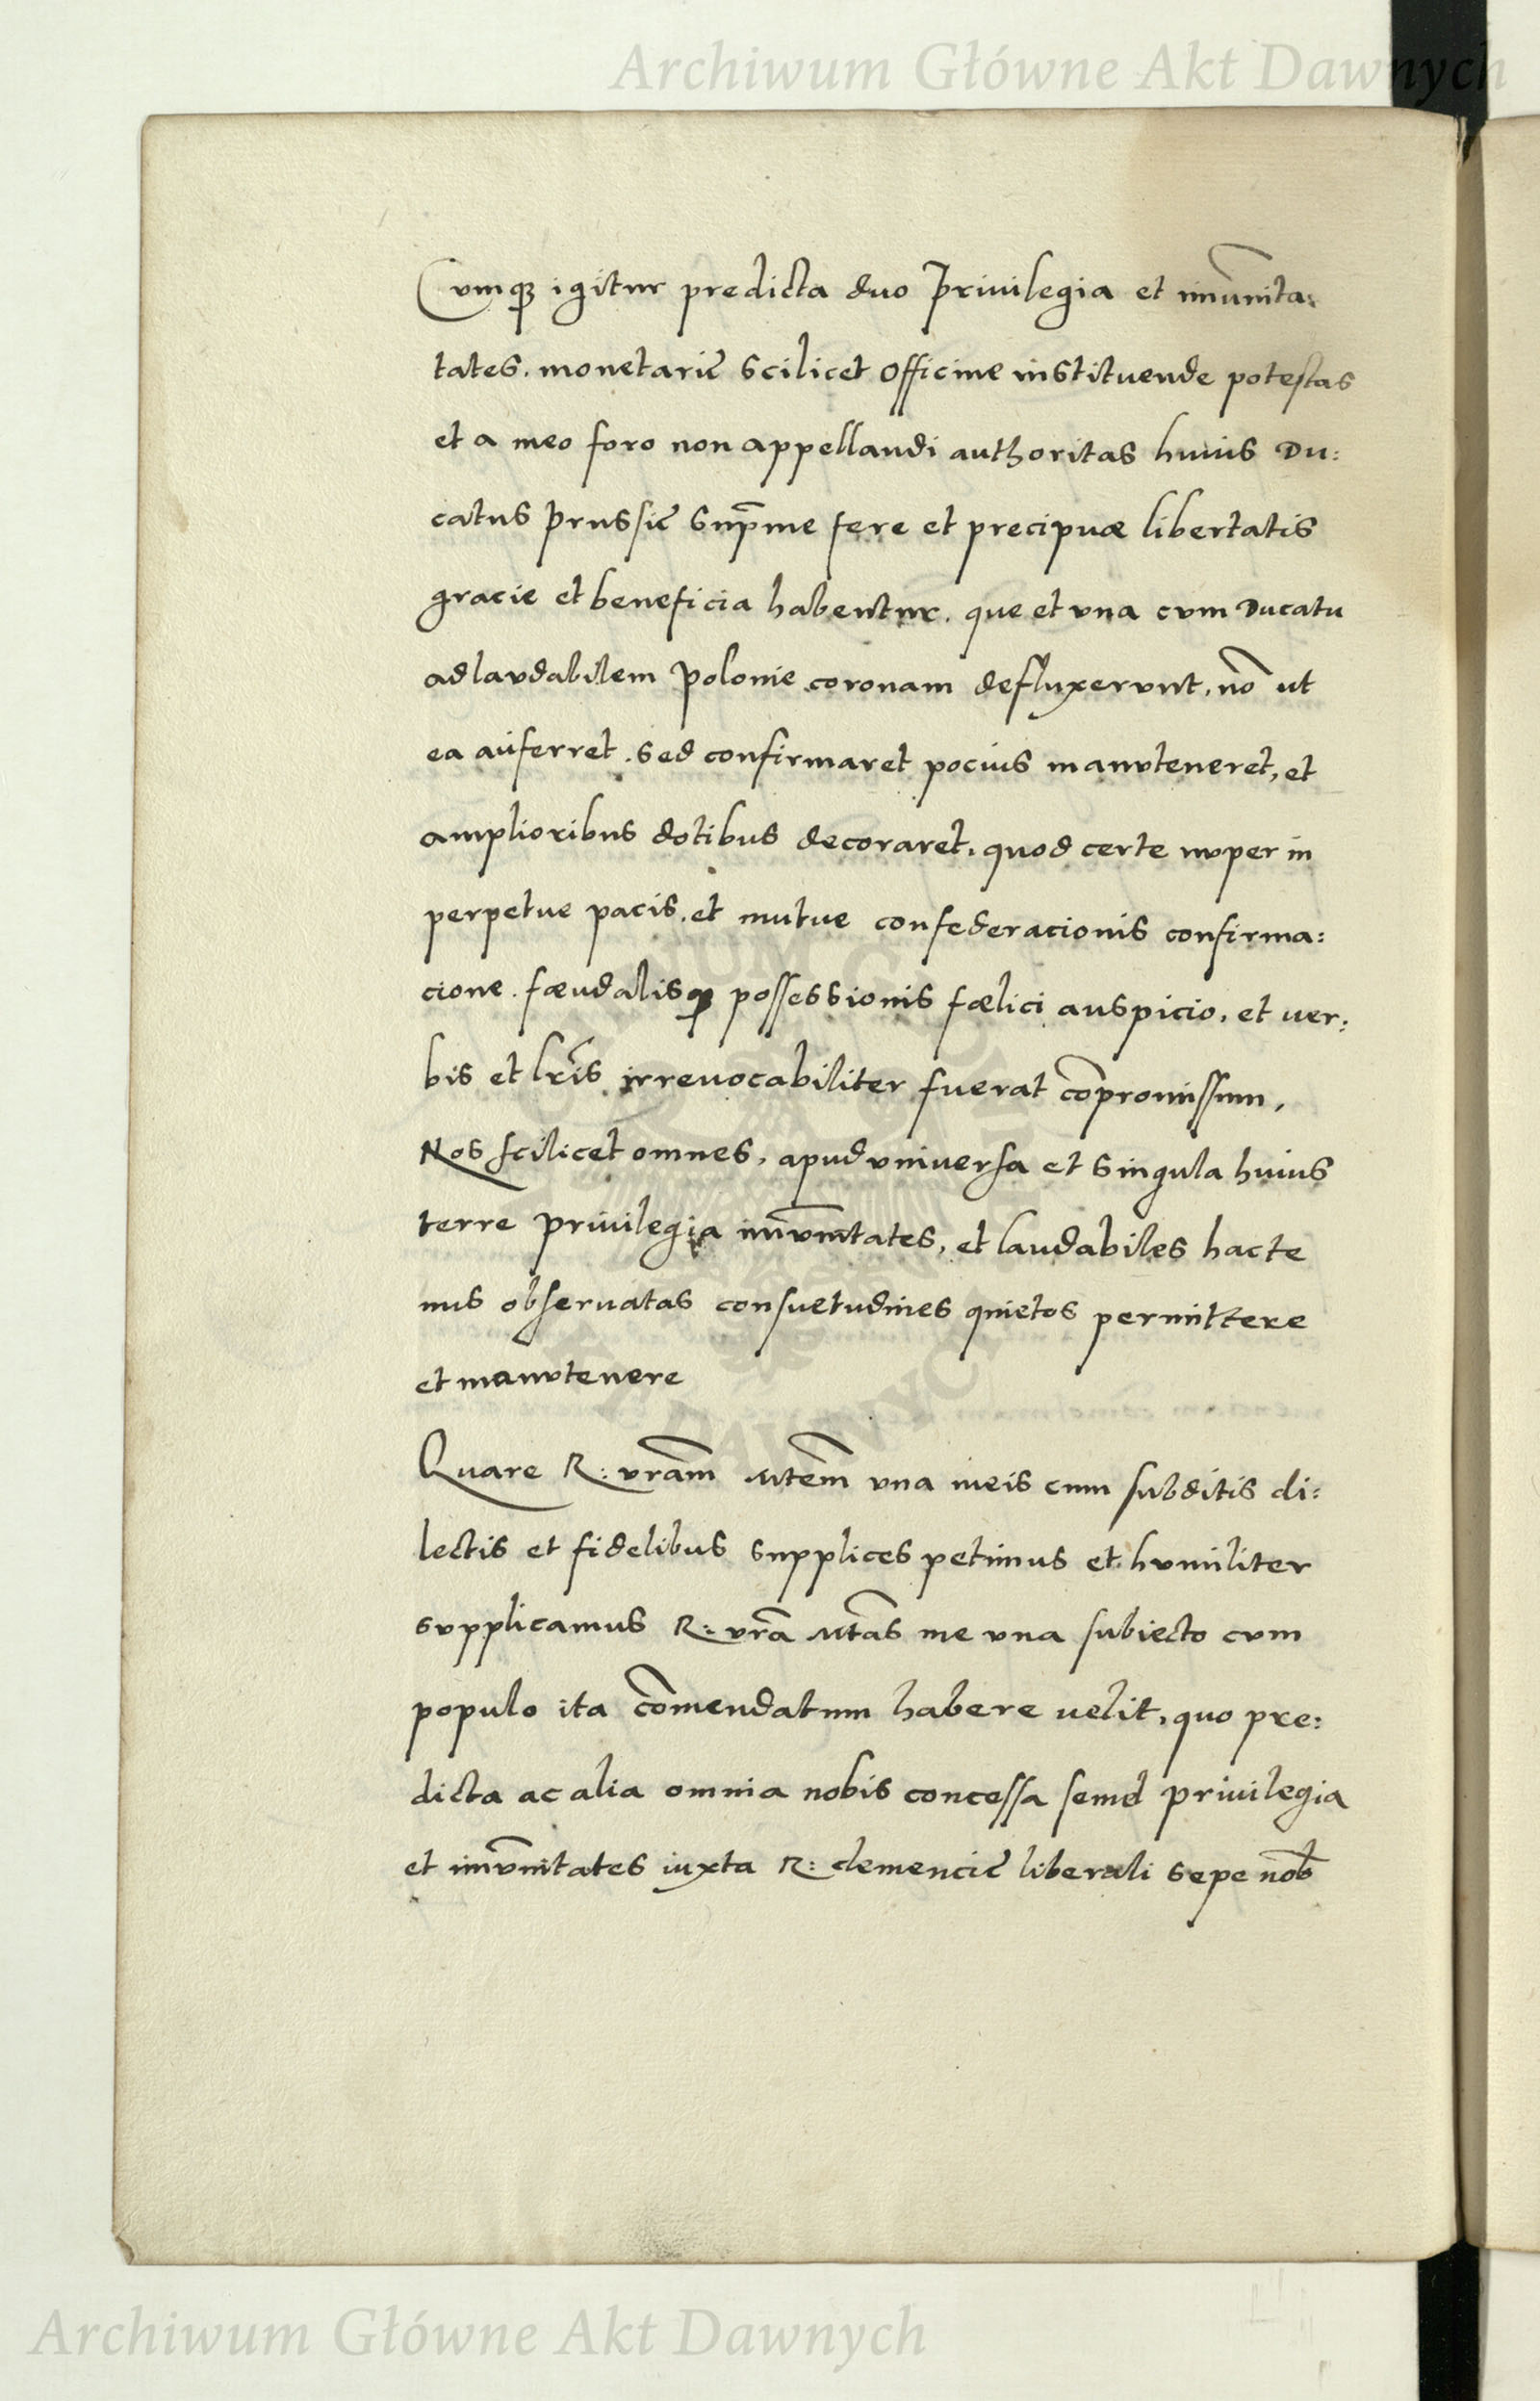 Archiwum Główne Akt Dawnych
Cumqꝫ igitur predicta duo Privilegia et im̄unita:
tates. monetarię scilicet officine instituende potestas
et a meo foro non appellandi authoritas huius Du:
catus Prussię sup̄me fere et precipuæ libertatis
gracie et beneficia habentur. que et vna cvm Ducatu
ad lavdabilem Polonie coronam defluxervnt, nō ut
ea auferret. sed confirmaret pocius manvteneret, et
amplioribus dotibus decoraret. quod certe nvper in
perpetue pacis. et mutue confederacionis confirma:
cione. fœudalisqꝫ possessionis fœlici auspicio, et uer:
bis et lr̄is irreuocabiliter fuerat cōpromissum,
Nos scilicet omnes, apud vniuersa et singula huius
terre priuilegia im̄vnitates, et laudabiles hacte
nus obseruatas consuetudines quietos permittere
et manvtenere
Quare R: vr̄am Mtēm vna meis cum subditis di:
lectis et fidelibus supplices petimus et hvmiliter
svpplicamus R: vr̄a Mtās me vna subiecto cvm
populo ita cōmendatum habere uelit, quo pre:
dicta ac alia omnia nobis concessa semel priuilegia
et im̄vnitates iuxta R: clemencię liberali sepe nob̄
Archiwum Główne Akt Dawnych